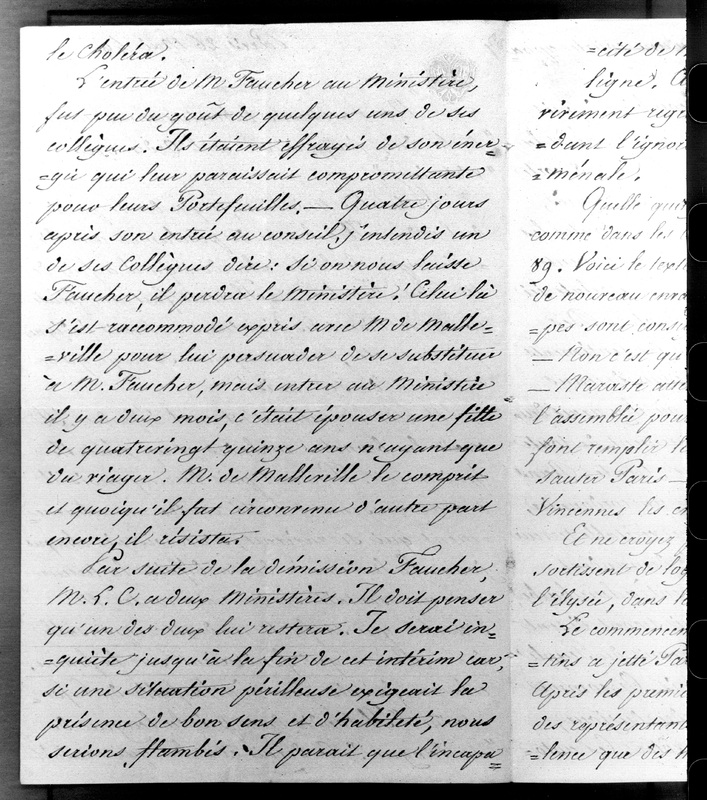 le Choléra.
L'entrée de M Faucher au Ministère,
fut peu du goût de quelques uns de ses
collègues. Ils étaient effrayés de son éner=
=gie qui leur paraissait compromittante
pour leurs Portefeuilles. — Quatre jours
après son entrée au conseil, j'entendis un
de ses Collègues dire: si on nous laisse
Faucher, il perdra le Ministère! Celui là
s'est raccommodé exprès avec M de Malle=
=ville pour lui persuader de se substituer
à M. Faucher, mais entrer au Ministère
il y a deux mois, c'était épouser une fille
de quatrevingt quinze ans n'ayant que
du viager. M. de Malleville le comprit
et quoiqu'il fut circonvenu d'autre part
encore, il résista.
Par suite de la démission Faucher,
M. L. C. a deux Ministères. Il doit penser
qu'un des deux lui restera. Je serai in=
=quiète jusqu'à la fin de cet intérim car,
si une situation périlleuse exigeait la
présence de bon sens et d'habileté, nous
serions flambés. Il parait que l'incapa=
=cité de
ligne.
=dant l'ignor
=ménale.
Quelle
comme dans les
89. Voici le texte
de nouveau
=pés sont
— Non c'est qu
— Marraste
l'assemblée pour
font remplir le
sauter Paris —
Vincennes les
Et ne croyez
sortissent de
l'élysée, dans
Le commencem
=tins a jetté Par
Après les premie
des représentan
=lence que des